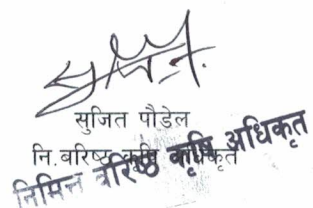 सुजित पौडेल
नि.बरिष्ठ कृषि अधिकृत
निमित्त बरिष्ठ कृषि अधिकृत